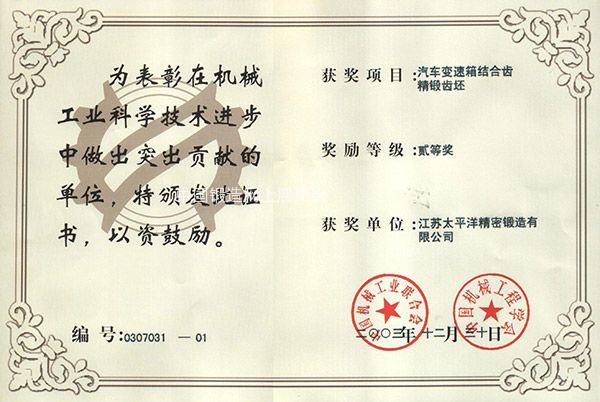 为表彰在机械
工业科学技术进步
中做出突出贡献的
单位，特颁发此证
书，以资鼓励。
编号：0307031 —01
获奖项目：汽车变速箱结合齿
精锻齿坯
奖励等级：贰等奖
获奖单位：江苏太平洋精密锻造有
限公司
中国机械工业联合会
中国机械工程学会
二〇〇三年十二月三十日